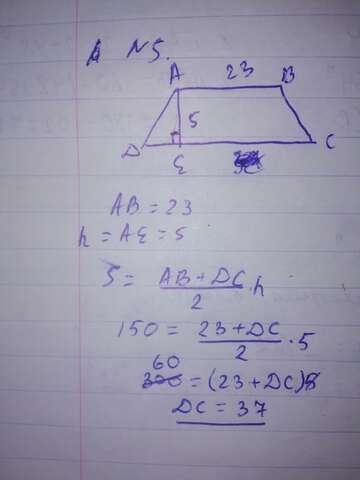 N5.
A 23 B
5
D E C
AB = 23
h = AE = 5
S = AB + DC / 2 · h
150 = 23 + DC / 2 · 5
60
300 = (23 + DC) 5
DC = 37